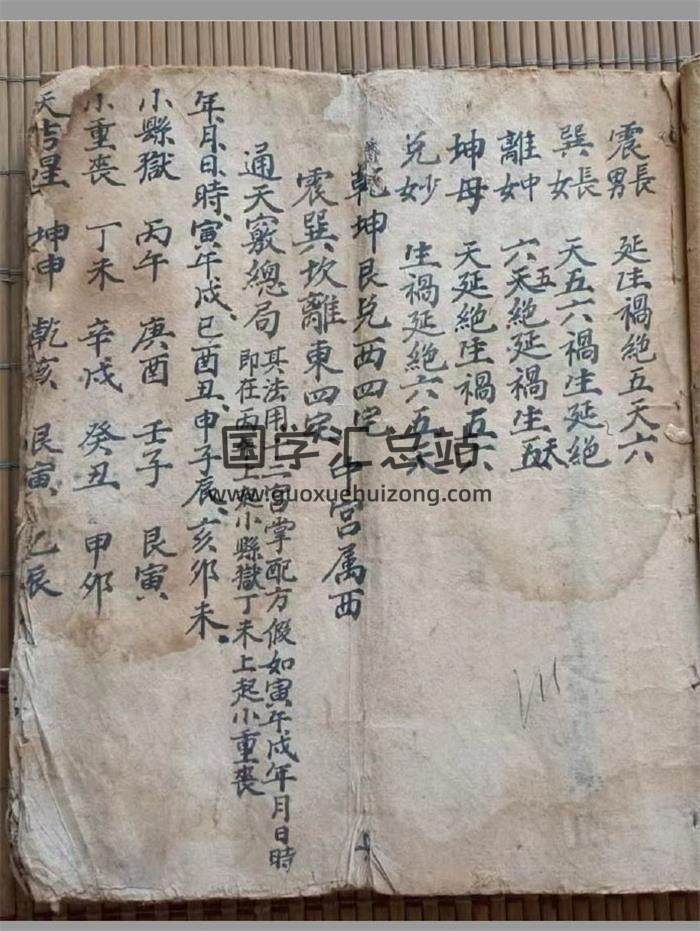 震長男 延生禍絕五天六
巽長女 天五六禍生延絕
離中女 六天五絕延禍生五天
坤母 天延絕生禍五六
兌妙 生禍延絕六五天
乾坤艮兌西四宅 中宮属西
震巽坎離東四宅
通天竅總局 其法用十二宮掌配方假如寅午戌年月日時
即在丙午上起小縣獄丁未上起小重喪
年、月、日、時、寅午戌、巳酉丑、申子辰、亥卯未、
小縣獄 丙午 庚酉 壬子 艮寅
小重喪 丁未 辛戌 癸丑 甲卯
天吉星 坤申 乾亥 艮寅 乙辰
国学汇总站
www.guoxuehuizong.com